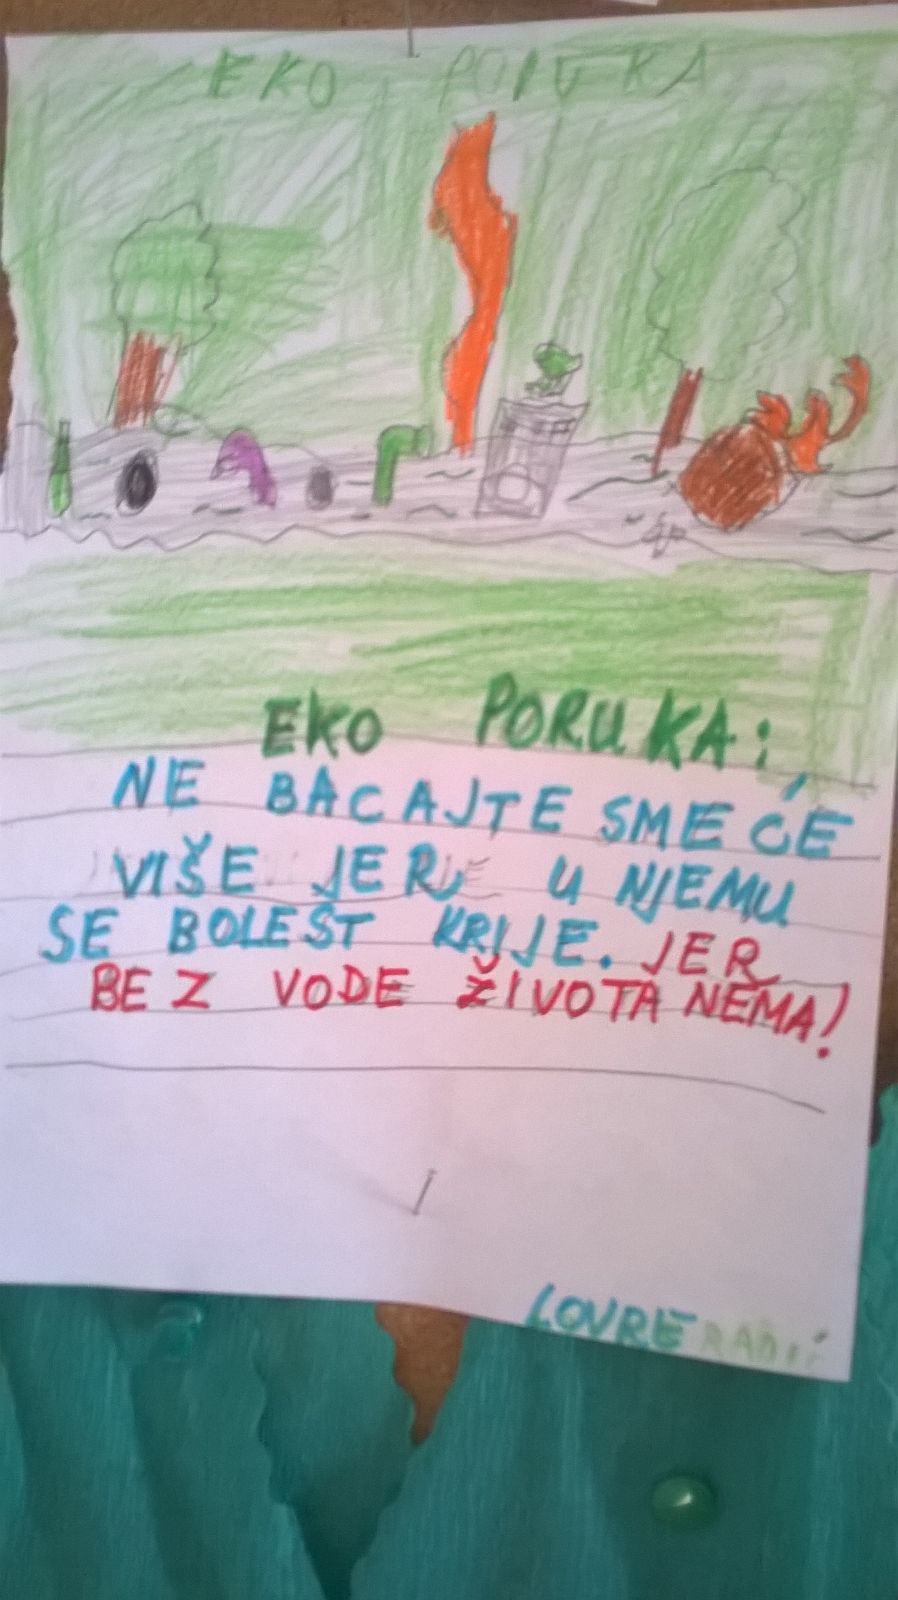 EKO PORUKA
EKO PORUKA:
NE BACAJTE SMEĆE
VIŠE JER U NJEMU
SE BOLEST KRIJE. JER
BEZ VODE ŽIVOTA NEMA!
LOVRE RADIĆ